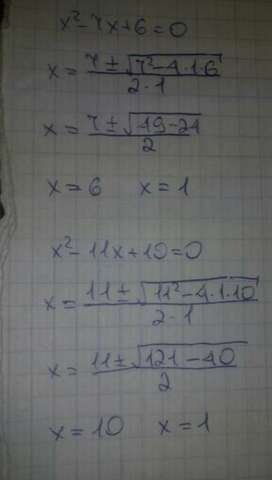 x²-7x+6=0
x=\frac{7±\sqrt{7²-4·1·6}}{2·1}
x=\frac{7±\sqrt{49-24}}{2}
x=6 x=1
x²-11x+10=0
x=\frac{11±\sqrt{11²-4·1·10}}{2·1}
x=\frac{11±\sqrt{121-40}}{2}
x=10 x=1